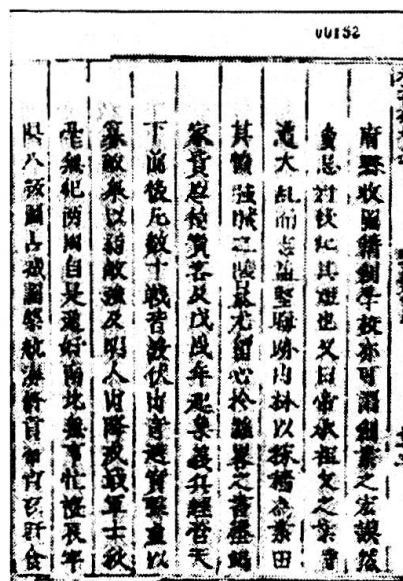 00152
府縣收圖籍創學校亦可謂創業之宏謨然
多忌好殺此其短也又曰帝承祖父之業時
遭大亂而志益堅晦跡山林以稼穡為業由
其憤強賊之陵暴尤留心於韜略之書罄竭
家貲以待賓客及戊戌年起集義兵經營天
下前後凡數十戰皆設伏出奇避實擊虛以
寡敵衆以弱敵強及明人出降戒戢軍士秋
毫無犯兩國自是通好南北無事忙禮哀牢
俱入版圖占城闍槃航海修貢帝宵衣旰食